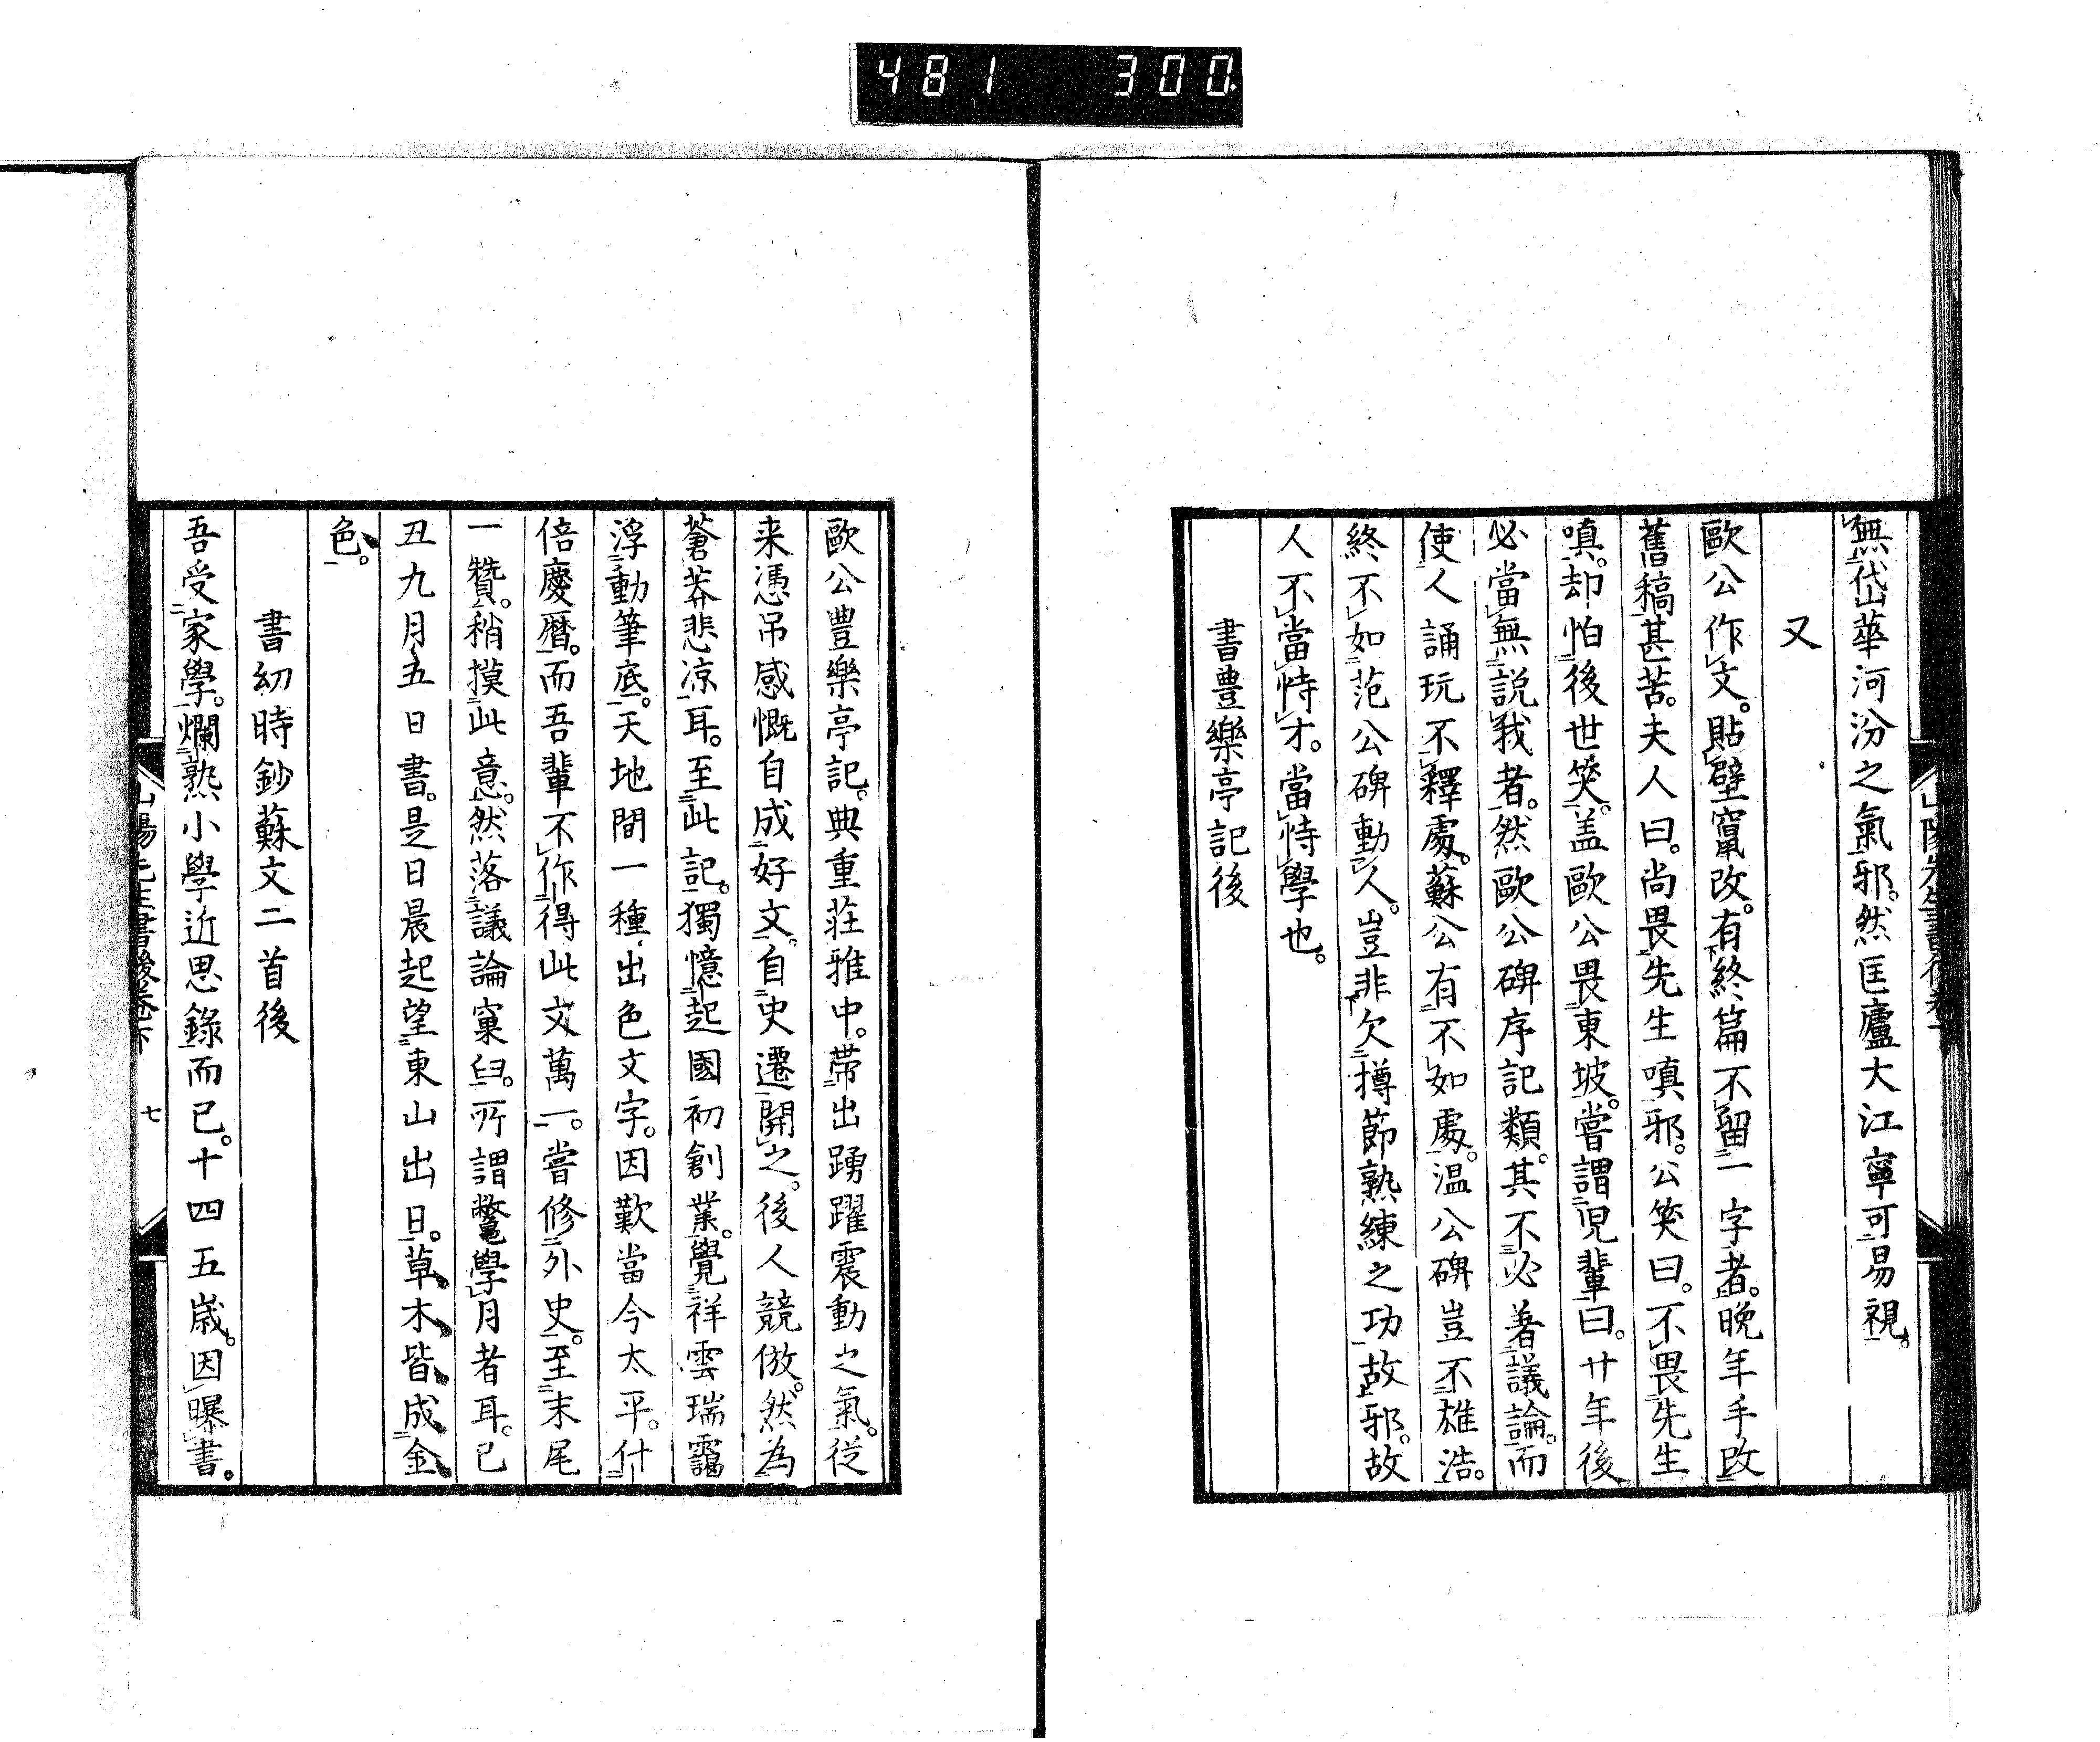 481 300
山陽先生書後卷下
無岱華河汾之氣邪。然匡廬大江寧可易視。
又
歐公作文。貼壁竄改。有終篇不留一字者。晚年手改
舊稿甚苦。夫人曰。尚畏先生嗔邪。公笑曰。不畏先生
嗔。却怕後世笑。盖歐公畏東坡。嘗謂児輩曰。廿年後
必當無説我者。然歐公碑序記類。其不必著議論。而
使人誦玩不釋處。蘇公有不如處。温公碑豈不雄浩。
終不如范公碑動人。豈非欠撙節熟練之功故邪。故
人不當恃才。當恃學也。
書豊樂亭記後
歐公豐樂亭記。典重莊雅中。帶出踴躍震動之氣。從
来憑吊感慨自成好文。自史遷開之。後人競倣。然為
蒼莽悲凉耳。至此記。獨憶起國初創業。覺祥雲瑞靄
浮動筆底。天地間一種出色文字。因歎當今太平。什
倍慶曆。而吾輩不作得此文萬一。嘗修外史。至末尾
一贊。稍摸此意。然落議論窠臼。所謂鼈學月者耳。已
丑九月五日書。是日晨起望東山出日。草木皆成金
色。
書幼時鈔蘇文二首後
吾受家學。爛熟小學近思錄而已。十四五歳。因曝書。
山陽先生書後卷下 七